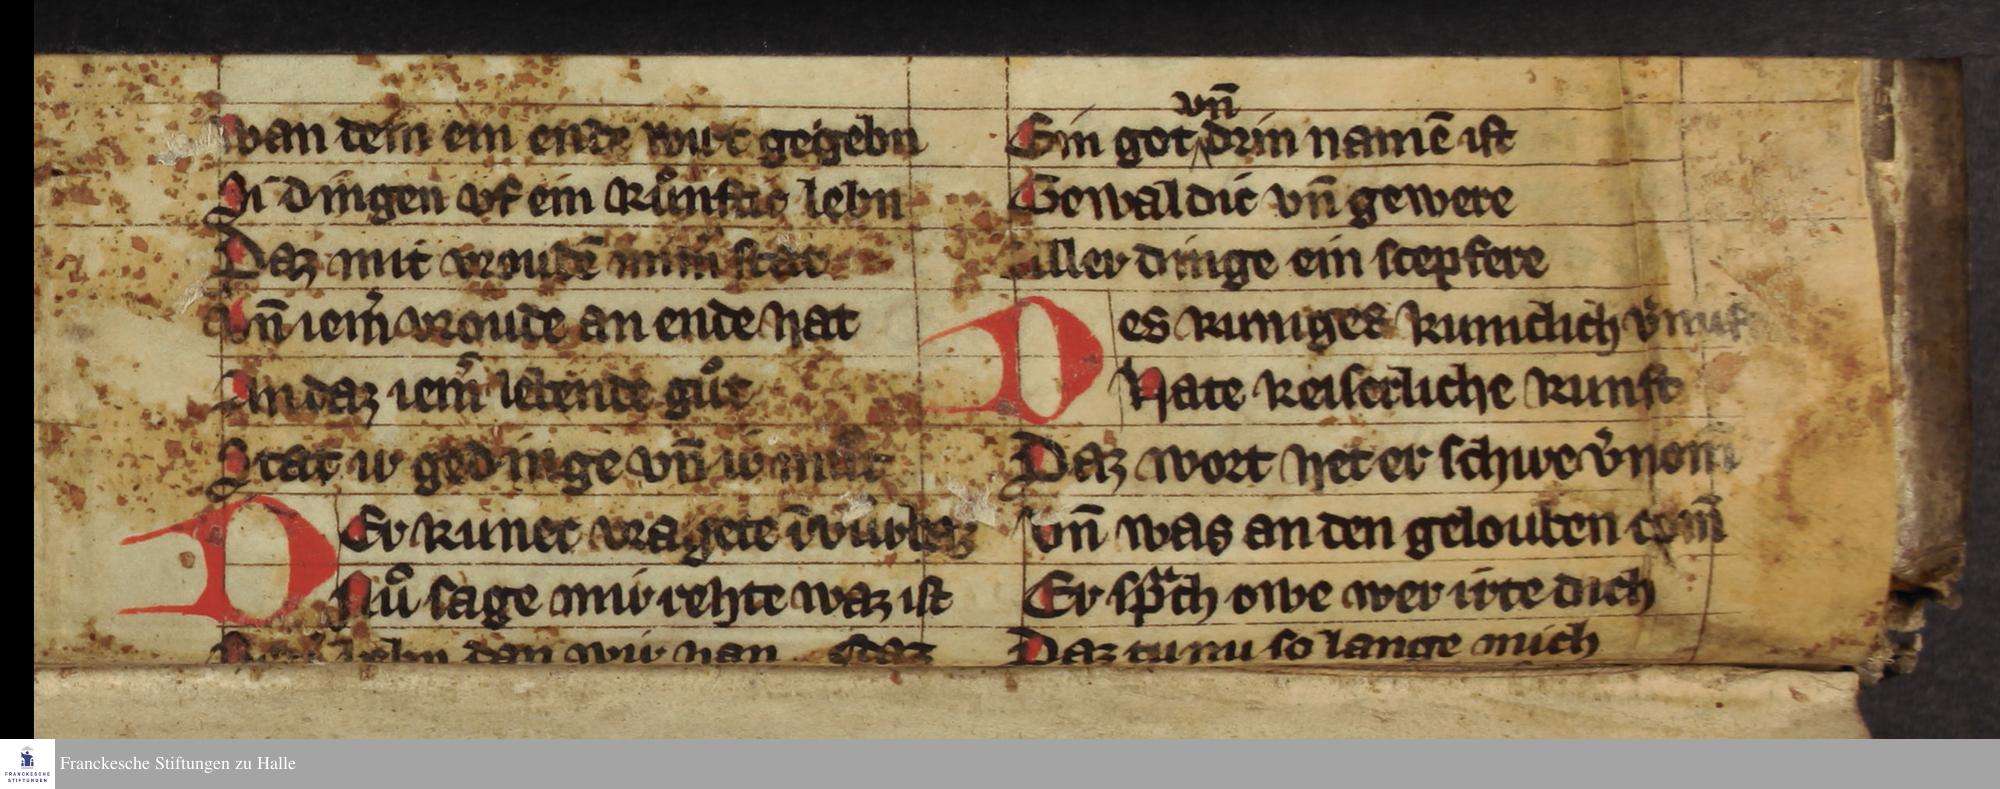 wan dem ein ende wirt gegebn
Si dingen vf ein kůnftic lebn
Daz mit vroudē stat
Vn̄ iem̓ vroude an ende hat
An daz iem̓ lebende gůt
Stat ir gedinge vn̄ ir můt
Der kunec vragete
Nů sage mir rehte waz ist
dan wir han daz
Ein got vn̄ drin namē ist
Gewaldic vn̄ gewere
Aller dinge ein scepfere
Des kuniges kunclich v̓nuft
Hate keiserliche kunst
Daz wort het er schire v̓nom̄
Vn̄ was an den gelouben com̄
Er sprach owe wer irte dich
Daz tu nu so lange mich
Franckesche Stiftungen zu Halle
FRANCKESCHE
STIFTUNGEN